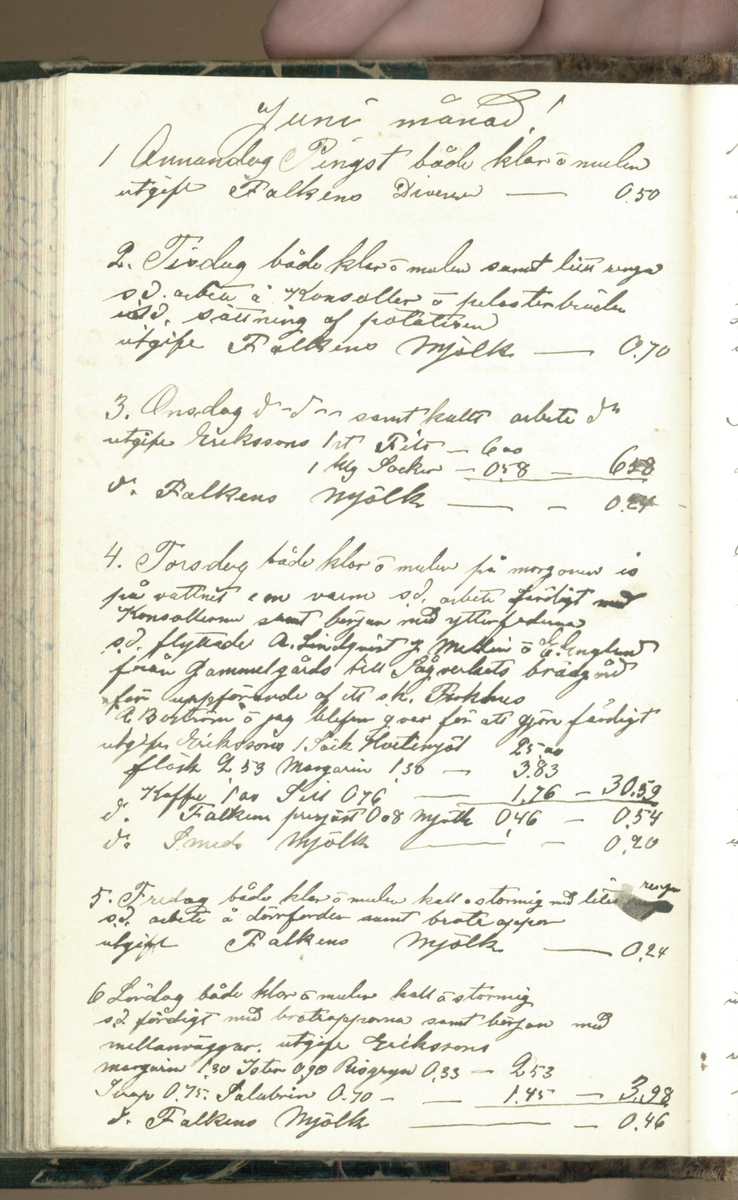 Juni månad!
1 Annandag Pingst både klar o mulen
utgift Falkens Diverse — 0.50
2. Tisdag både klar o mulen samt litt regn
s.d. arbete å Konsoller o
s.d. sättning af potatisen
utgift Falkens Mjölk — 0.70
3. Onsdag d- d- samt kallt arbete do
utgift Erikssons 1 st Filt — 6 00
1 klg Socker — 0.58 — 6.58
d. Falkens Mjölk — - 0.24
4. Torsdag både klar o mulen på morgonen is
på vattnet s.d. arbete färdigt med
Konsollerna samt början med
s.d. flyttade A. Lindqvist J. Mellin o E. Englund
från Gammelgårds till Sågverkets brädgård
för uppförande af ett sk. Kokhus
A. Boström o jag blefvo qvar för att gjöra färdigt
utgift Erikssons 1 Säck Hvetemjöl 25 00
fläsk 2 53 Margarin 1.30 — 3.83
Kaffe 1 00 Sill 0 76 — 1.76 — 30.59
d. Falkens pressjäst 0.08 Mjölk 0.46 — 0.54
d. Smeds Mjölk — 0.20
5. Fredag både klar o mulen kall o stormig med lite regn
s.d. arbete å dörrfoder samt
utgift Falkens Mjölk — 0.24
6 Lördag både klar o mulen kall o stormig
s.d. färdigt med samt början med
mellanväggar. utgift Erikssons
margarin 1.30 Ister 0.90 Risgryn 0.33 — 2 53
Sirap 0.75. Salubrin 0.70 - — 1.45 — 3.98
d. Falkens Mjölk — 0.46